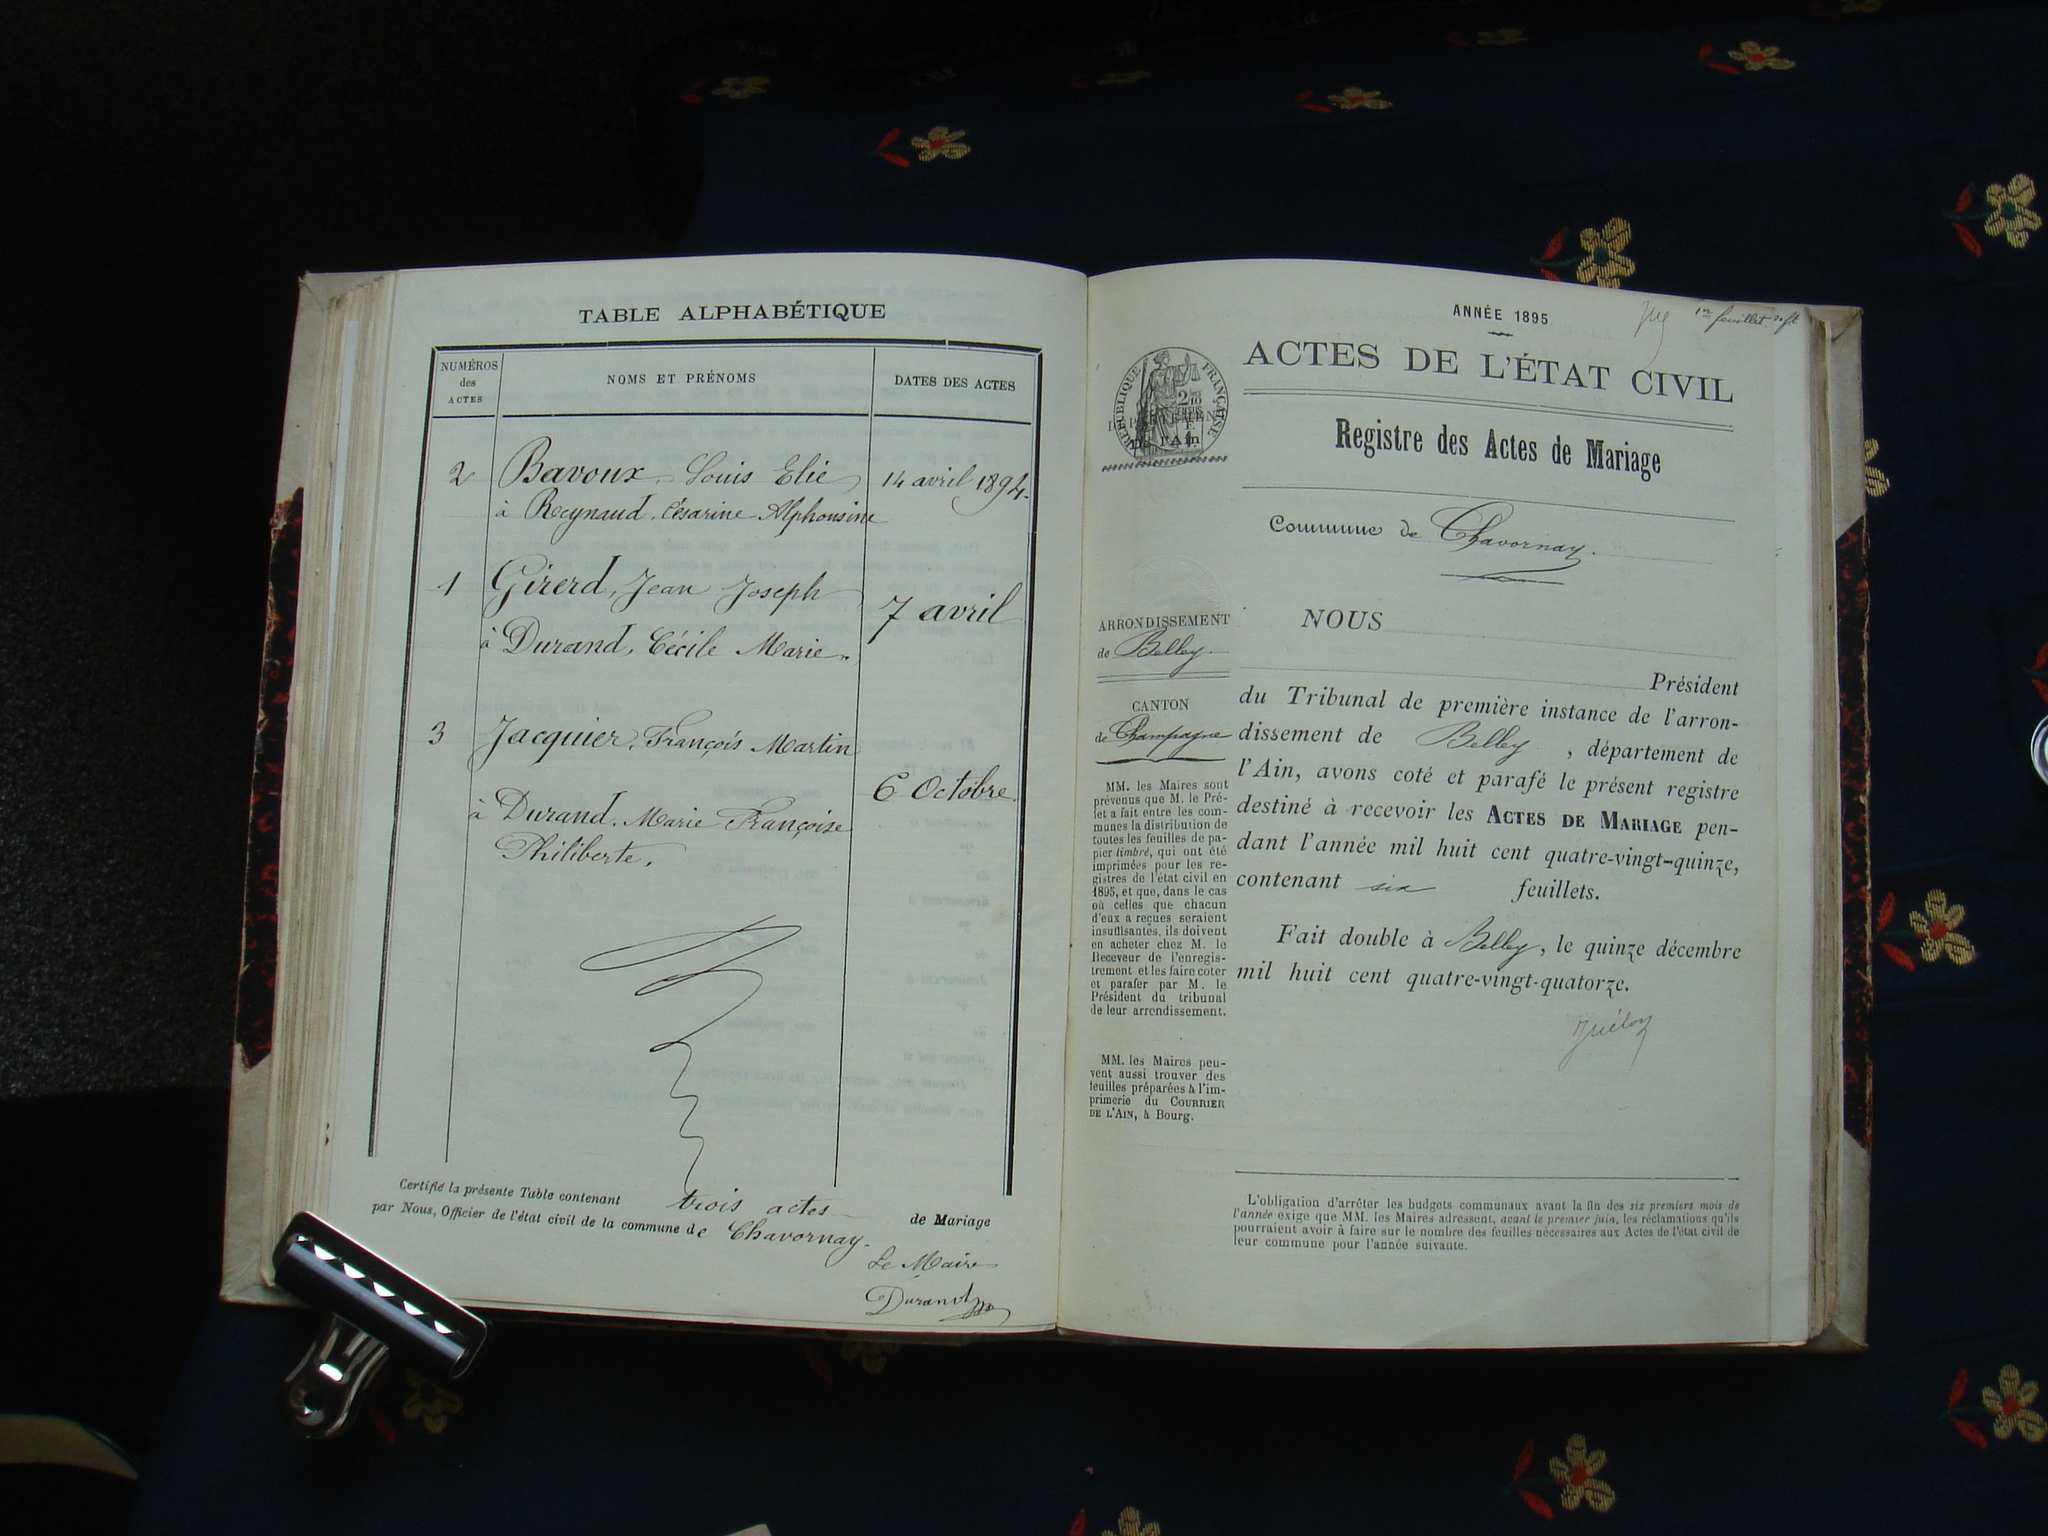 TABLE ALPHABÉTIQUE
NUMÉROS
des
ACTES
NOMS ET PRÉNOMS
DATES DES ACTES
2 Bavoux, Louis Elie 14 avril 1894.
à Reynaud, Césarine Alphonsine
1 Girerd, Jean Joseph
7 avril
à Durand, Cécile Marie.
3 Jacquier, François Martin
6 Octobre.
à Durand, Marie Françoise
Philiberte.
Certifié la présente Table contenant trois actes de Mariage
par Nous, Officier de l'état civil de la commune de Chavornay.
Le Maire
Durand
ANNÉE 1895
1er feuillet
RÉPUBLIQUE FRANÇAISE
ACTES DE L'ÉTAT CIVIL
Registre des Actes de Mariage
Commune de Chavornay.
ARRONDISSEMENT
de Belley.
CANTON
de Champagne
MM. les Maires sont
prévenus que M. le Pré-
fet a fait entre les com-
munes la distribution de
toutes les feuilles de pa-
pier timbré, qui ont été
imprimées pour les re-
gistres de l'état civil en
1895, et que, dans le cas
où celles que chacun
d'eux a reçues seraient
insuffisantes, ils doivent
en acheter chez M. le
Receveur de l'enregis-
trement et les faire coter
et parafer par M. le
Président du tribunal
de leur arrondissement.
MM. les Maires peu-
vent aussi trouver des
feuilles préparées à l'im-
primerie du COURRIER
DE L'AIN, à Bourg.
NOUS
Président
du Tribunal de première instance de l'arron-
dissement de Belley, département de
l'Ain, avons coté et parafé le présent registre
destiné à recevoir les ACTES DE MARIAGE pen-
dant l'année mil huit cent quatre-vingt-quinze,
contenant six feuillets.
Fait double à Belley, le quinze décembre
mil huit cent quatre-vingt-quatorze.
L'obligation d'arrêter les budgets communaux avant la fin des six premiers mois de
l'année exige que MM. les Maires adressent, avant le premier juin, les réclamations qu'ils
pourraient avoir à faire sur le nombre des feuilles nécessaires aux Actes de l'état civil de
leur commune pour l'année suivante.